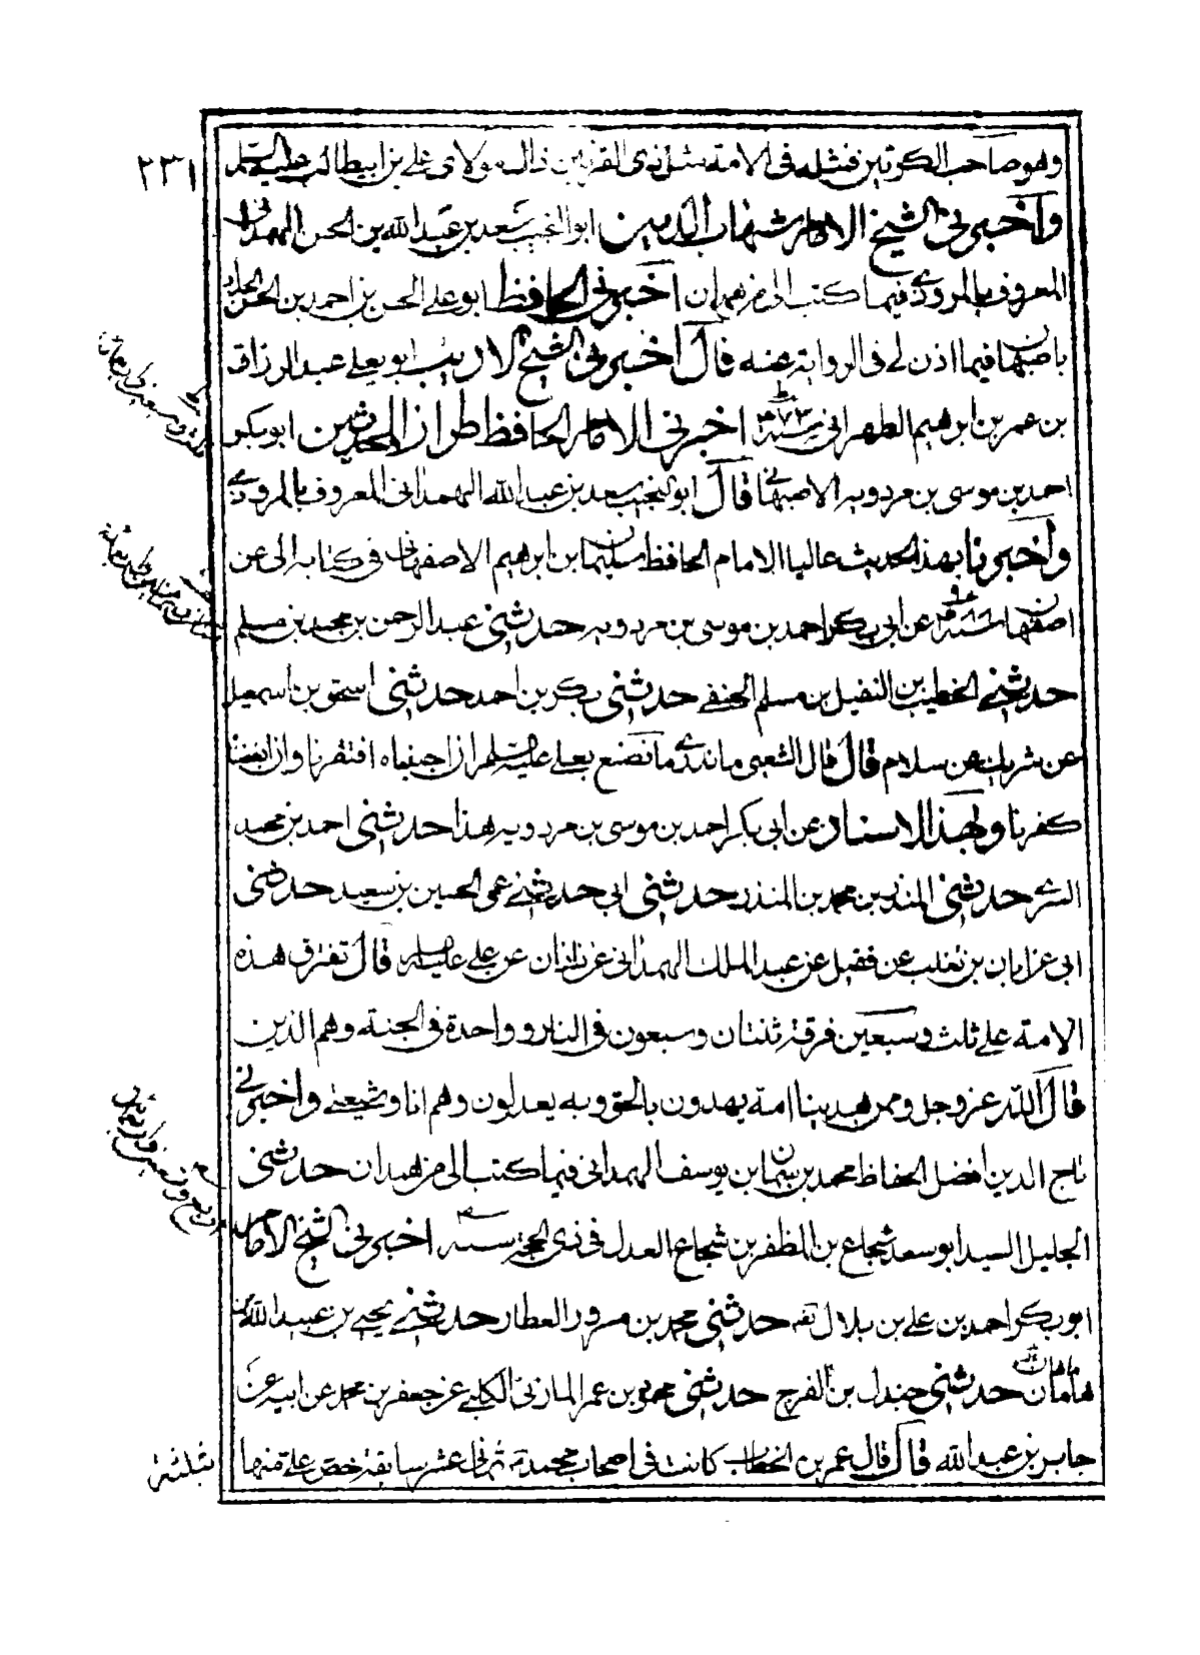 ٢٣١
وهو صاحب الكرتين فمثله في الامة مثل ذي القرنين قال مولاي علي بن ابيطالب عليه السلم
وأخبرني الشيخ الامام شهاب الدين ابو النجيب سعد بن عبد الله بن الحسن الهمداني
المعروف بالمروزي فيما كتب الي من همدان اخبرني الحافظ ابو علي الحسن بن احمد بن الحسن الحداد
باصبهان فيما اذن لي في الرواية عنه قال اخبرني الشيخ الاديب ابو يعلي عبد الرزاق
بن عمر بن ابرهيم الطهراني سنة ٤٧٣ اخبرني الامام الحافظ طراز المحدثين ابو بكر
احمد بن موسى بن مردويه الاصبهاني قال ابو النجيب سعد بن عبد الله الهمداني المعروف بالمروزي
وأخبرنا بهذا الحديث عاليا الامام الحافظ سليمان بن ابرهيم الاصفهاني في كتابه الي عن
اصفهان سنة عن ابي بكر احمد بن موسى بن مردويه حدثني عبد الرحمن بن محمد بن مسلم
حدثني الخطيب بن النفيل بن مسلم الحنفي حدثني بكر بن احمد حدثني اسحق بن اسمعيل
عن شريك عن سلام قال قال الشعبي ما ندري ما نصنع بعلي عليه السلم ان احببناه افتقرنا وان ابغضنا
كفرنا وبهذا الاسناد عن ابي بكر احمد بن موسى بن مردويه هذا حدثني احمد بن محمد
السري حدثني المنذر بن محمد بن المنذر حدثني ابي حدثني عمي الحسين بن سعيد حدثني
ابي عن ابان بن تغلب عن فضيل عن عبد الملك الهمداني عن زاذان عن علي عليه السلم قال تفترق هذه
الامة علي ثلث وسبعين فرقة ثنتان وسبعون في النار وواحدة في الجنة وهم الذين
قال الله عز وجل وممن هدينا امة يهدون بالحق وبه يعدلون وهم انا وشيعتي واخبرني
تاج الدين افضل الحفاظ محمد بن بنيمان بن يوسف الهمداني فيما كتب الي من همدان حدثني
الجليل السيد ابو سعد شجاع بن المظفر بن شجاع العدل في ذي الحجة سنة اخبرني الشيخ الامام
ابو بكر احمد بن علي بن بلال حدثني محمد بن مسرور العطار حدثني يحيى بن عبيد الله
ماهان حدثني جندل بن الفرج حدثني محمود بن عمر المازني الكلبي عن جعفر بن محمد عن ابيه عن
جابر بن عبد الله قال قال عمر بن الخطاب كانت في اصحاب محمد ثماني عشر سابقة خص علي منها
بثلثة